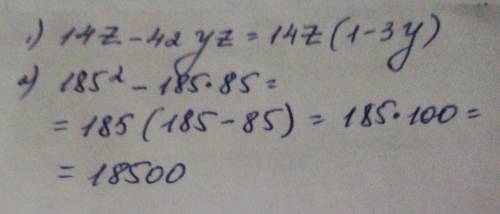 1.) 14z - 42yz = 14z (1-3y)
2) 185² - 185·85 =
= 185 (185 - 85) = 185·100 =
= 18500